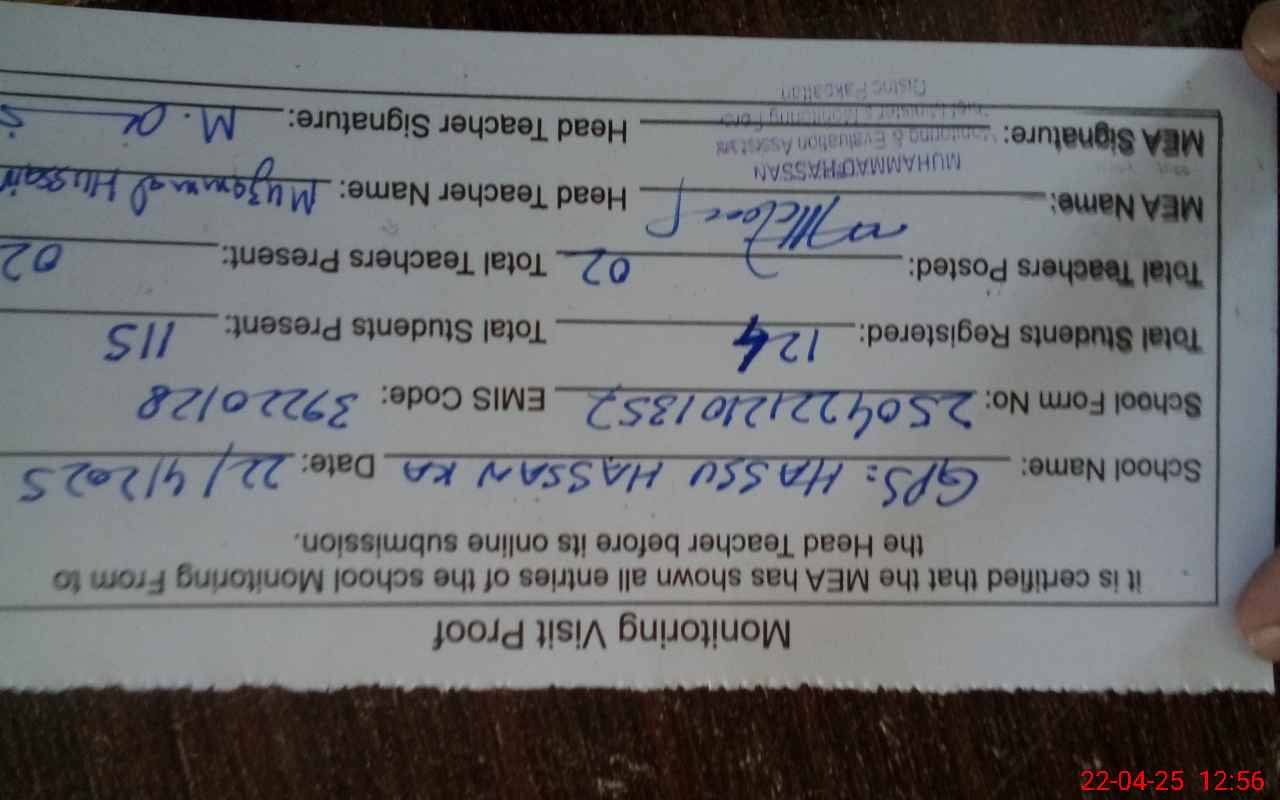 Monitoring Visit Proof
it is certified that the MEA has shown all entries of the school Monitoring From to
the Head Teacher before its online submission.
School Name: GPS: HASSU HASSAN KA Date: 22/4/2025
School Form No: 25042212101352 EMIS Code: 39220128
Total Students Registered: 124 Total Students Present: 115
Total Teachers Posted: 02 Total Teachers Present: 02
MEA Name: Head Teacher Name: Muzammal Hussain
MUHAMMAD HASSAN
Monitoring & Evaluation Assistant
MEA Signature: Head Teacher Signature: M.
Chief Minister's Monitoring Force
District Pakpattan
22-04-25 12:56